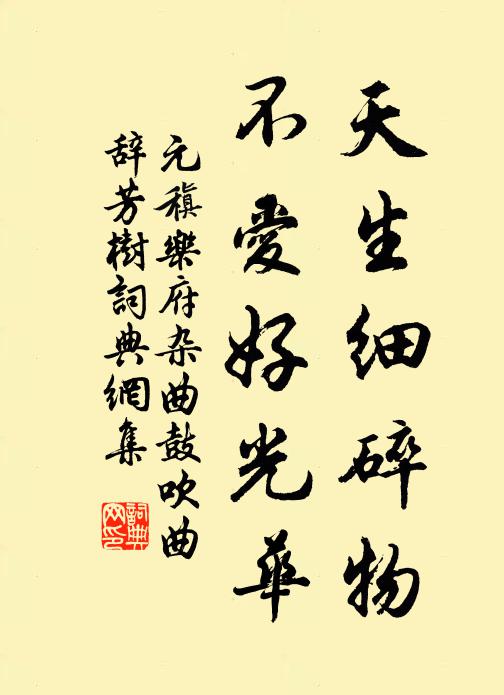 天生细碎物
不愛好光華
元稹樂府杂曲鼓吹曲
辞芳樹詞典網集
詞典
网印